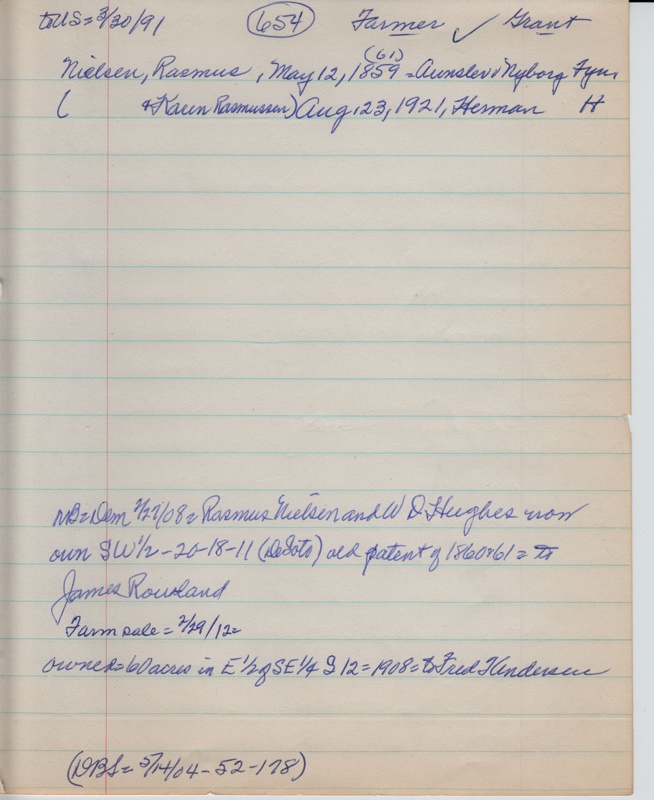 to US = 3/30/91 654 Farmer ✓ Grant
(61)
Nielsen, Rasmus, May 12, 1859 = Aunslev i Nyborg Fyn
( + Karen Rasmussen) Aug. 23, 1921, Herman H
NB = Dem 2/27/08 = Rasmus Nielsen and W D Hughes now
own SW 1/2 - 20-18-11 (DeSoto) old patent of 1860+61 = to
James Rowland
Farm sale = 2/29/12 =
owned = 60 acres in E 1/2 of SE 1/4 S 12 = 1908 = to Fred
(DBS = 3/14/04 - 52-178)